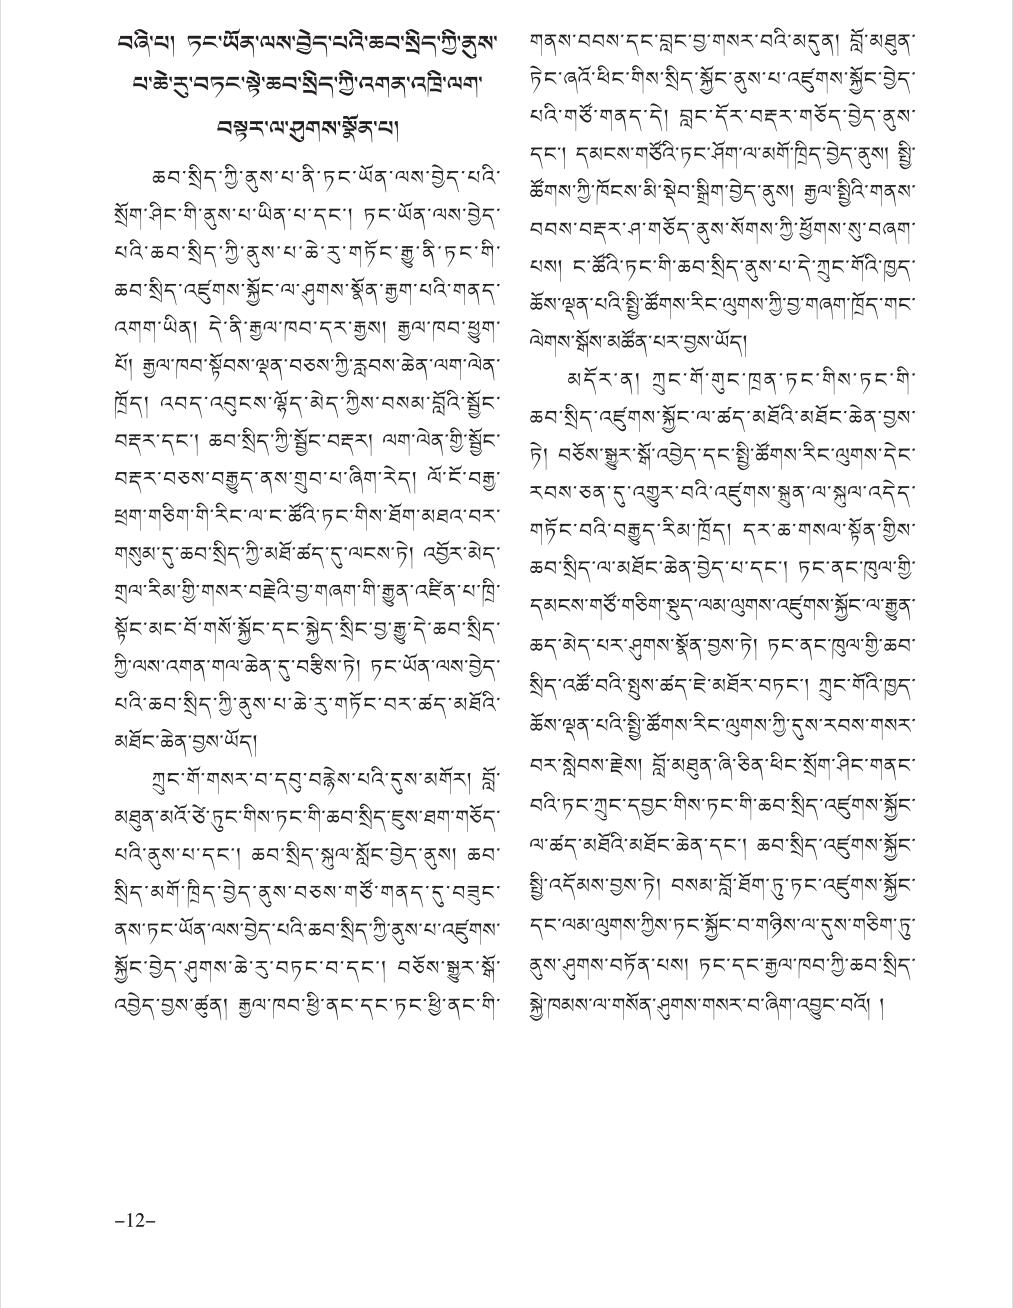 བཞི་པ། ཏང་ཡོན་ལས་བྱེད་པའི་ཆབ་སྲིད་ཀྱི་ནུས་
པ་ཆེ་རུ་བཏང་སྟེ་ཆབ་སྲིད་ཀྱི་འགན་འཁྲི་ལག་
བསྟར་ལ་ཤུགས་སྣོན་པ།
ཆབ་སྲིད་ཀྱི་ནུས་པ་ནི་ཏང་ཡོན་ལས་བྱེད་པའི་
སྲོག་ཤིང་གི་ནུས་པ་ཡིན་པ་དང་། ཏང་ཡོན་ལས་བྱེད་
པའི་ཆབ་སྲིད་ཀྱི་ནུས་པ་ཆེ་རུ་གཏོང་རྒྱུ་ནི་ཏང་གི་
ཆབ་སྲིད་འཛུགས་སྐྱོང་ལ་ཤུགས་སྣོན་རྒྱག་པའི་གནད་
འགག་ཡིན། དེ་ནི་རྒྱལ་ཁབ་དར་རྒྱས། རྒྱལ་ཁབ་ཕྱུག་
པོ། རྒྱལ་ཁབ་སྟོབས་ལྡན་བཅས་ཀྱི་རླབས་ཆེན་ལག་ལེན་
ཁྲོད། འབད་འབུངས་ལྷོད་མེད་ཀྱིས་བསམ་བློའི་སྦྱོང་
བརྡར་དང་། ཆབ་སྲིད་ཀྱི་སྦྱོང་བརྡར། ལག་ལེན་གྱི་སྦྱོང་
བརྡར་བཅས་བརྒྱུད་ནས་གྲུབ་པ་ཞིག་རེད། ལོ་ངོ་བརྒྱ་
ཕྲག་གཅིག་གི་རིང་ལ་ང་ཚོའི་ཏང་གིས་ཐོག་མཐའ་བར་
གསུམ་དུ་ཆབ་སྲིད་ཀྱི་མཐོ་ཚད་དུ་ལངས་ཏེ། འབྱོར་མེད་
གྲལ་རིམ་གྱི་གསར་བརྗེའི་བྱ་གཞག་གི་རྒྱུན་འཛིན་པ་ཁྲི་
སྟོང་མང་བོ་གསོ་སྐྱོང་དང་སྐྱེད་སྲིང་བྱ་རྒྱུ་དེ་ཆབ་སྲིད་
ཀྱི་ལས་འགན་གལ་ཆེན་དུ་བརྩིས་ཏེ། ཏང་ཡོན་ལས་བྱེད་
པའི་ཆབ་སྲིད་ཀྱི་ནུས་པ་ཆེ་རུ་གཏོང་བར་ཚད་མཐོའི་
མཐོང་ཆེན་བྱས་ཡོད།
ཀྲུང་གོ་གསར་བ་དབུ་བརྙེས་པའི་དུས་མགོར། བློ་
མཐུན་མའོ་ཙེ་ཏུང་གིས་ཏང་གི་ཆབ་སྲིད་ཇུས་ཐག་གཅོད་
པའི་ནུས་པ་དང་། ཆབ་སྲིད་སྐུལ་སློང་བྱེད་ནུས། ཆབ་
སྲིད་མགོ་ཁྲིད་བྱེད་ནུས་བཅས་གཙོ་གནད་དུ་བཟུང་
ནས་ཏང་ཡོན་ལས་བྱེད་པའི་ཆབ་སྲིད་ཀྱི་ནུས་པ་འཛུགས་
སྐྱོང་བྱེད་ཤུགས་ཆེ་རུ་བཏང་བ་དང་། བཅོས་སྒྱུར་སྒོ་
འབྱེད་བྱས་ཚུན། རྒྱལ་ཁབ་ཕྱི་ནང་དང་ཏང་ཕྱི་ནང་གི་
གནས་བབས་དང་བླང་བྱ་གསར་བའི་མདུན། བློ་མཐུན་
ཏེང་ཞའོ་ཕིང་གིས་སྲིད་སྐྱོང་ནུས་པ་འཛུགས་སྐྱོང་བྱེད་
པའི་གཙོ་གནད་དེ། བླང་དོར་བརྡར་གཅོད་བྱེད་ནུས་
དང་། དམངས་གཙོའི་ཏང་ཤོག་ལ་མགོ་ཁྲིད་བྱེད་ནུས། སྤྱི་
ཚོགས་ཀྱི་ཁོངས་མི་སྡེབ་སྒྲིག་བྱེད་ནུས། རྒྱལ་སྤྱིའི་གནས་
བབས་བརྡར་ཤ་གཅོད་ནུས་སོགས་ཀྱི་ཕྱོགས་སུ་བཞག་
པས། ང་ཚོའི་ཏང་གི་ཆབ་སྲིད་ནུས་པ་དེ་ཀྲུང་གོའི་ཁྱད་
ཆོས་ལྡན་པའི་སྤྱི་ཚོགས་རིང་ལུགས་ཀྱི་བྱ་གཞག་ཁྲོད་གང་
ལེགས་སྒོས་མཚོན་པར་བྱས་ཡོད།
མདོར་ན། ཀྲུང་གོ་གུང་ཁྲན་ཏང་གིས་ཏང་གི་
ཆབ་སྲིད་འཛུགས་སྐྱོང་ལ་ཚད་མཐོའི་མཐོང་ཆེན་བྱས་
ཏེ། བཅོས་སྒྱུར་སྒོ་འབྱེད་དང་སྤྱི་ཚོགས་རིང་ལུགས་དེང་
རབས་ཅན་དུ་འགྱུར་བའི་འཛུགས་སྐྲུན་ལ་སྐུལ་འདེད་
གཏོང་བའི་བརྒྱུད་རིམ་ཁྲོད། དར་ཆ་གསལ་སྟོན་གྱིས་
ཆབ་སྲིད་ལ་མཐོང་ཆེན་བྱེད་པ་དང་། ཏང་ནང་ཁུལ་གྱི་
དམངས་གཙོ་གཅིག་སྡུད་ལམ་ལུགས་འཛུགས་སྐྱོང་ལ་རྒྱུན་
ཆད་མེད་པར་ཤུགས་སྣོན་བྱས་ཏེ། ཏང་ནང་ཁུལ་གྱི་ཆབ་
སྲིད་འཚོ་བའི་སྤུས་ཚད་ཇེ་མཐོར་བཏང་། ཀྲུང་གོའི་ཁྱད་
ཆོས་ལྡན་པའི་སྤྱི་ཚོགས་རིང་ལུགས་ཀྱི་དུས་རབས་གསར་
བར་སླེབས་རྗེས། བློ་མཐུན་ཞི་ཅིན་ཕིང་སྲོག་ཤིང་གནང་
བའི་ཏང་ཀྲུང་དབྱང་གིས་ཏང་གི་ཆབ་སྲིད་འཛུགས་སྐྱོང་
ལ་ཚད་མཐོའི་མཐོང་ཆེན་དང་། ཆབ་སྲིད་འཛུགས་སྐྱོང་
སྤྱི་འདོམས་བྱས་ཏེ། བསམ་བློ་ཐོག་ཏུ་ཏང་འཛུགས་སྐྱོང་
དང་ལམ་ལུགས་ཀྱིས་ཏང་སྐྱོང་བ་གཉིས་ལ་དུས་གཅིག་ཏུ་
ནུས་ཤུགས་བཏོན་པས། ཏང་དང་རྒྱལ་ཁབ་ཀྱི་ཆབ་སྲིད་
སྐྱེ་ཁམས་ལ་གསོན་ཤུགས་གསར་བ་ཞིག་འབྱུང་བའོ། །
–12–